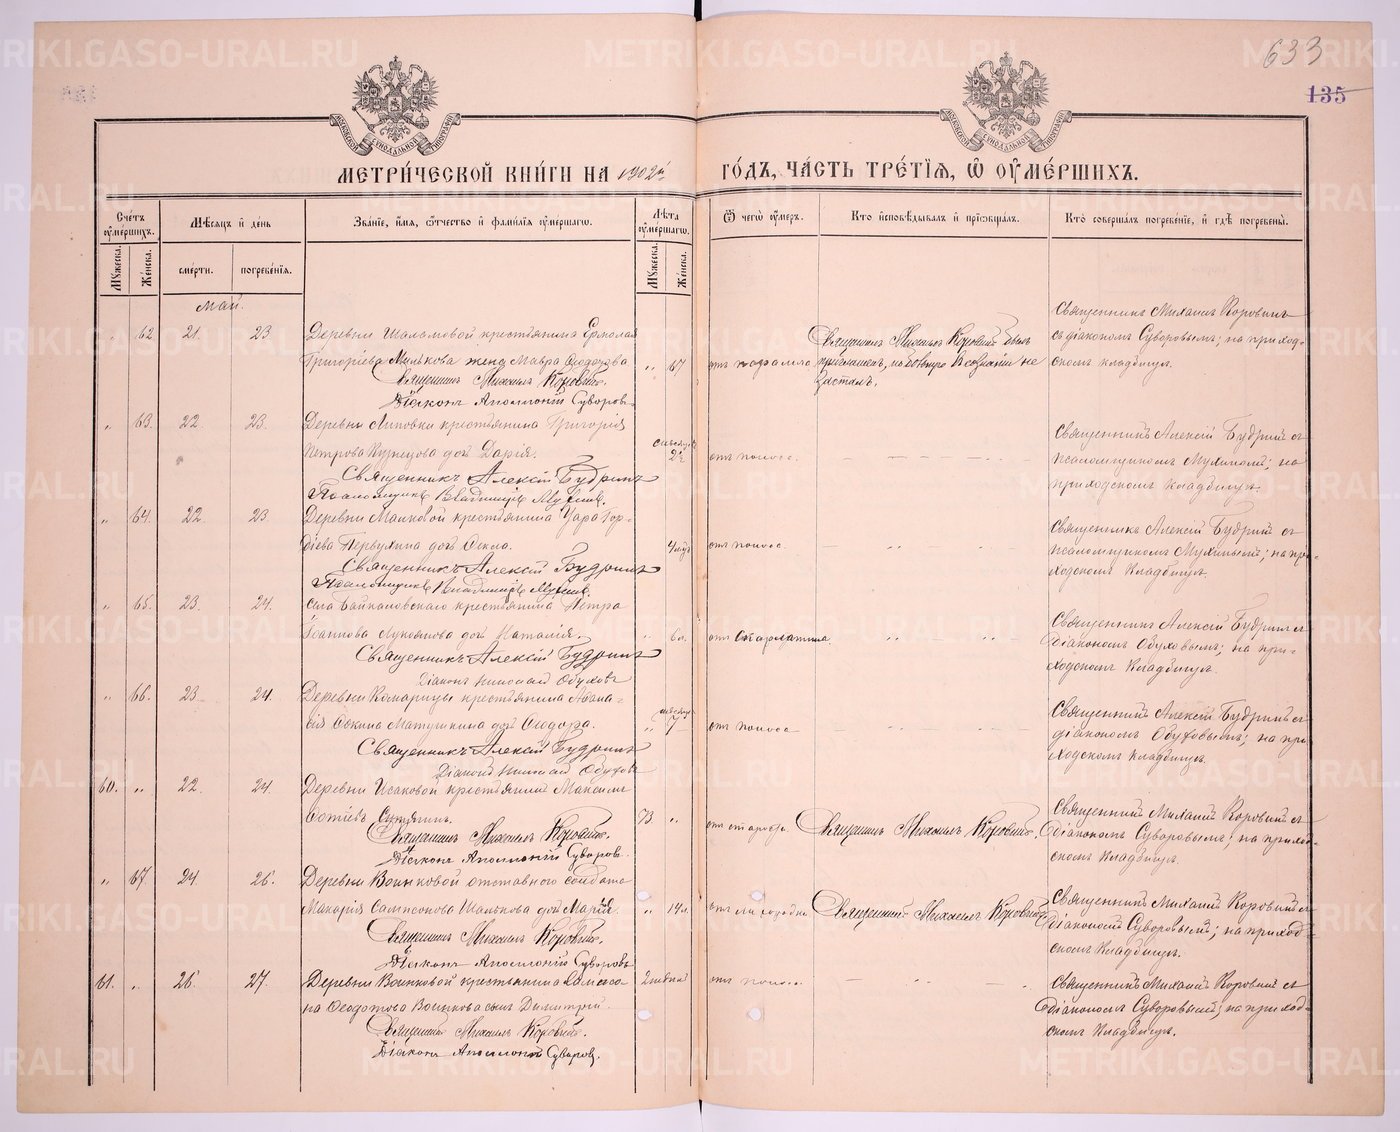 633
135
МЕТРИ́ЧЕСКОЙ КНИ́ГИ НА 1902й ГО́ДЪ, ЧА́СТЬ ТРЕ́ТІЯ, Ѡ ОУМЕ́РШИХЪ.
Сче́тъ оуме́ршихъ.
Мꙋжеска.
Же́нска.
Мѣсяцъ и де́нь
сме́рти.
погребе́нія.
Зва́ніе, и́мя, о́тчество и фами́лія оуме́ршагѡ.
Лѣта оуме́ршагѡ.
Мꙋжеска.
Же́нска.
Ѿ чегѡ̀ оу́меръ.
Кто̀ исповѣ́дывалъ и прїѡбща́лъ.
Кто̀ соверша́лъ погребе́ніе, и гдѣ̀ погребены̀.
Май.
„ 62 21. 23. Деревни Шаламовой крестьянина Ермолая
Григоріева Милькова жена Мавра Ѳеодорова „ 67
Священникъ Михаилъ Коровинъ.
Діаконъ Аполлоній Суворовъ
Священникъ Михаилъ Коровинъ былъ
приглашенъ, но больную въ сознаніи не
засталъ.
Священникъ Михаилъ Коровинъ
съ діакономъ Суворовымъ; на приход-
скомъ кладбищѣ.
„ 63. 22. 23. Деревни Липовки крестьянина Григорія
Петрова Кузнецова дочь Дарія. 2½ отъ поноса.
Священникъ Алексій Будринъ
Псаломщикъ Владимиръ Мухинъ.
Священникъ Алексій Будринъ съ
псаломщикомъ Мухинымъ; на
приходскомъ кладбищѣ.
„ 64. 22. 23. Деревни Малковой крестьянина Уара Гор-
діева Первухина дочь Ѳекла. отъ поноса
Священникъ Алексій Будринъ
Псаломщикъ Владимиръ Мухинъ.
Священникъ Алексій Будринъ съ
псаломщикомъ Мухинымъ; на при-
ходскомъ кладбищѣ.
„ 65. 23. 24. Села Байкаловскаго крестьянина Петра
Іоаннова Лукоянова дочь Наталія. „ 6 л. отъ скарлатина
Священникъ Алексій Будринъ
Діаконъ Николай Обуховъ
Священникъ Алексій Будринъ съ
діакономъ Обуховымъ; на при-
ходскомъ кладбищѣ.
„ 66. 23. 24. Деревни Комарицы крестьянина Аѳана-
сія Ѳокина Матушкина дочь Ѳеодора. „ 7 отъ поноса
Священникъ Алексій Будринъ
Діаконъ Николай Обуховъ
Священникъ Алексій Будринъ съ
діакономъ Обуховымъ; на при-
ходскомъ кладбищѣ.
60. „ 22. 24. Деревни Исаковой крестьянинъ Максимъ
73 „ отъ старости. Священникъ Михаилъ Коровинъ.
Священникъ Михаилъ Коровинъ.
Діаконъ Аполлоній Суворовъ.
Священникъ Михаилъ Коровинъ съ
діакономъ Суворовымъ; на приход-
скомъ кладбищѣ.
„ 67. 24. 26. Деревни Воинковой отставного солдата
Макарія Сампсонова Шалькова дочь Марія. „ 14 л. отъ лихорадки Священникъ Михаилъ Коровинъ
Священникъ Михаилъ Коровинъ.
Діаконъ Аполлоній Суворовъ
Священникъ Михаилъ Коровинъ съ
діакономъ Суворовымъ; на приход-
скомъ кладбищѣ.
61. „ 26. 27. Деревни Воинковой крестьянина Сампсо-
на Ѳеодотова Воинкова сынъ Димитрій. отъ поноса.
Священникъ Михаилъ Коровинъ.
Діаконъ Аполлоній Суворовъ.
Священникъ Михаилъ Коровинъ съ
діакономъ Суворовымъ; на приход-
скомъ кладбищѣ.
METRIKI.GASO-URAL.RU